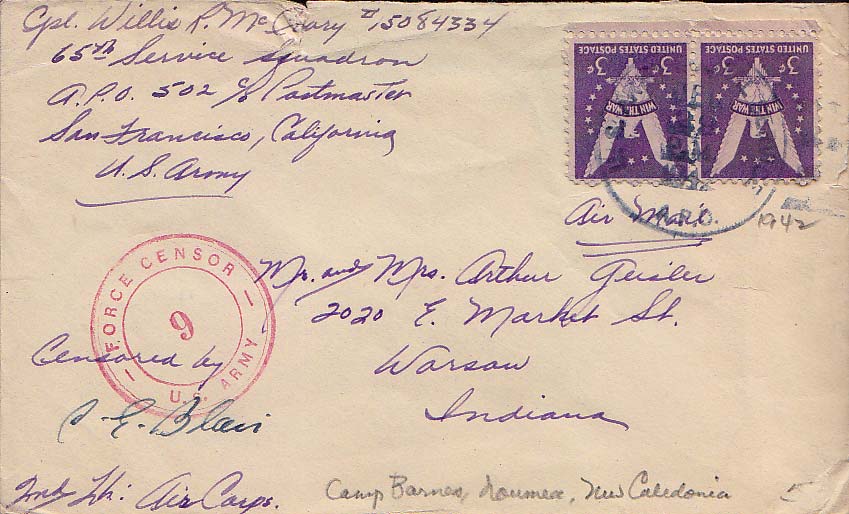 Cpl. Willis R. McCrary #15084334
65th Service Squadron
A.P.O. 502 c/o Postmaster
San Francisco, California
U.S. Army
UNITED STATES POSTAGE
3¢ 3¢
WIN THE WAR
UNITED STATES POSTAGE
3¢ 3¢
WIN THE WAR
A.P.O.
1942
Air Mail
Mr. and Mrs. Arthur Geisler
2020 E. Market St.
Warsaw
Indiana
FORCE CENSOR
9
U.S. ARMY
Censored by
C. E. Blair
2nd Lt. Air Corps.
Camp Barnes, Noumea, New Caledonia